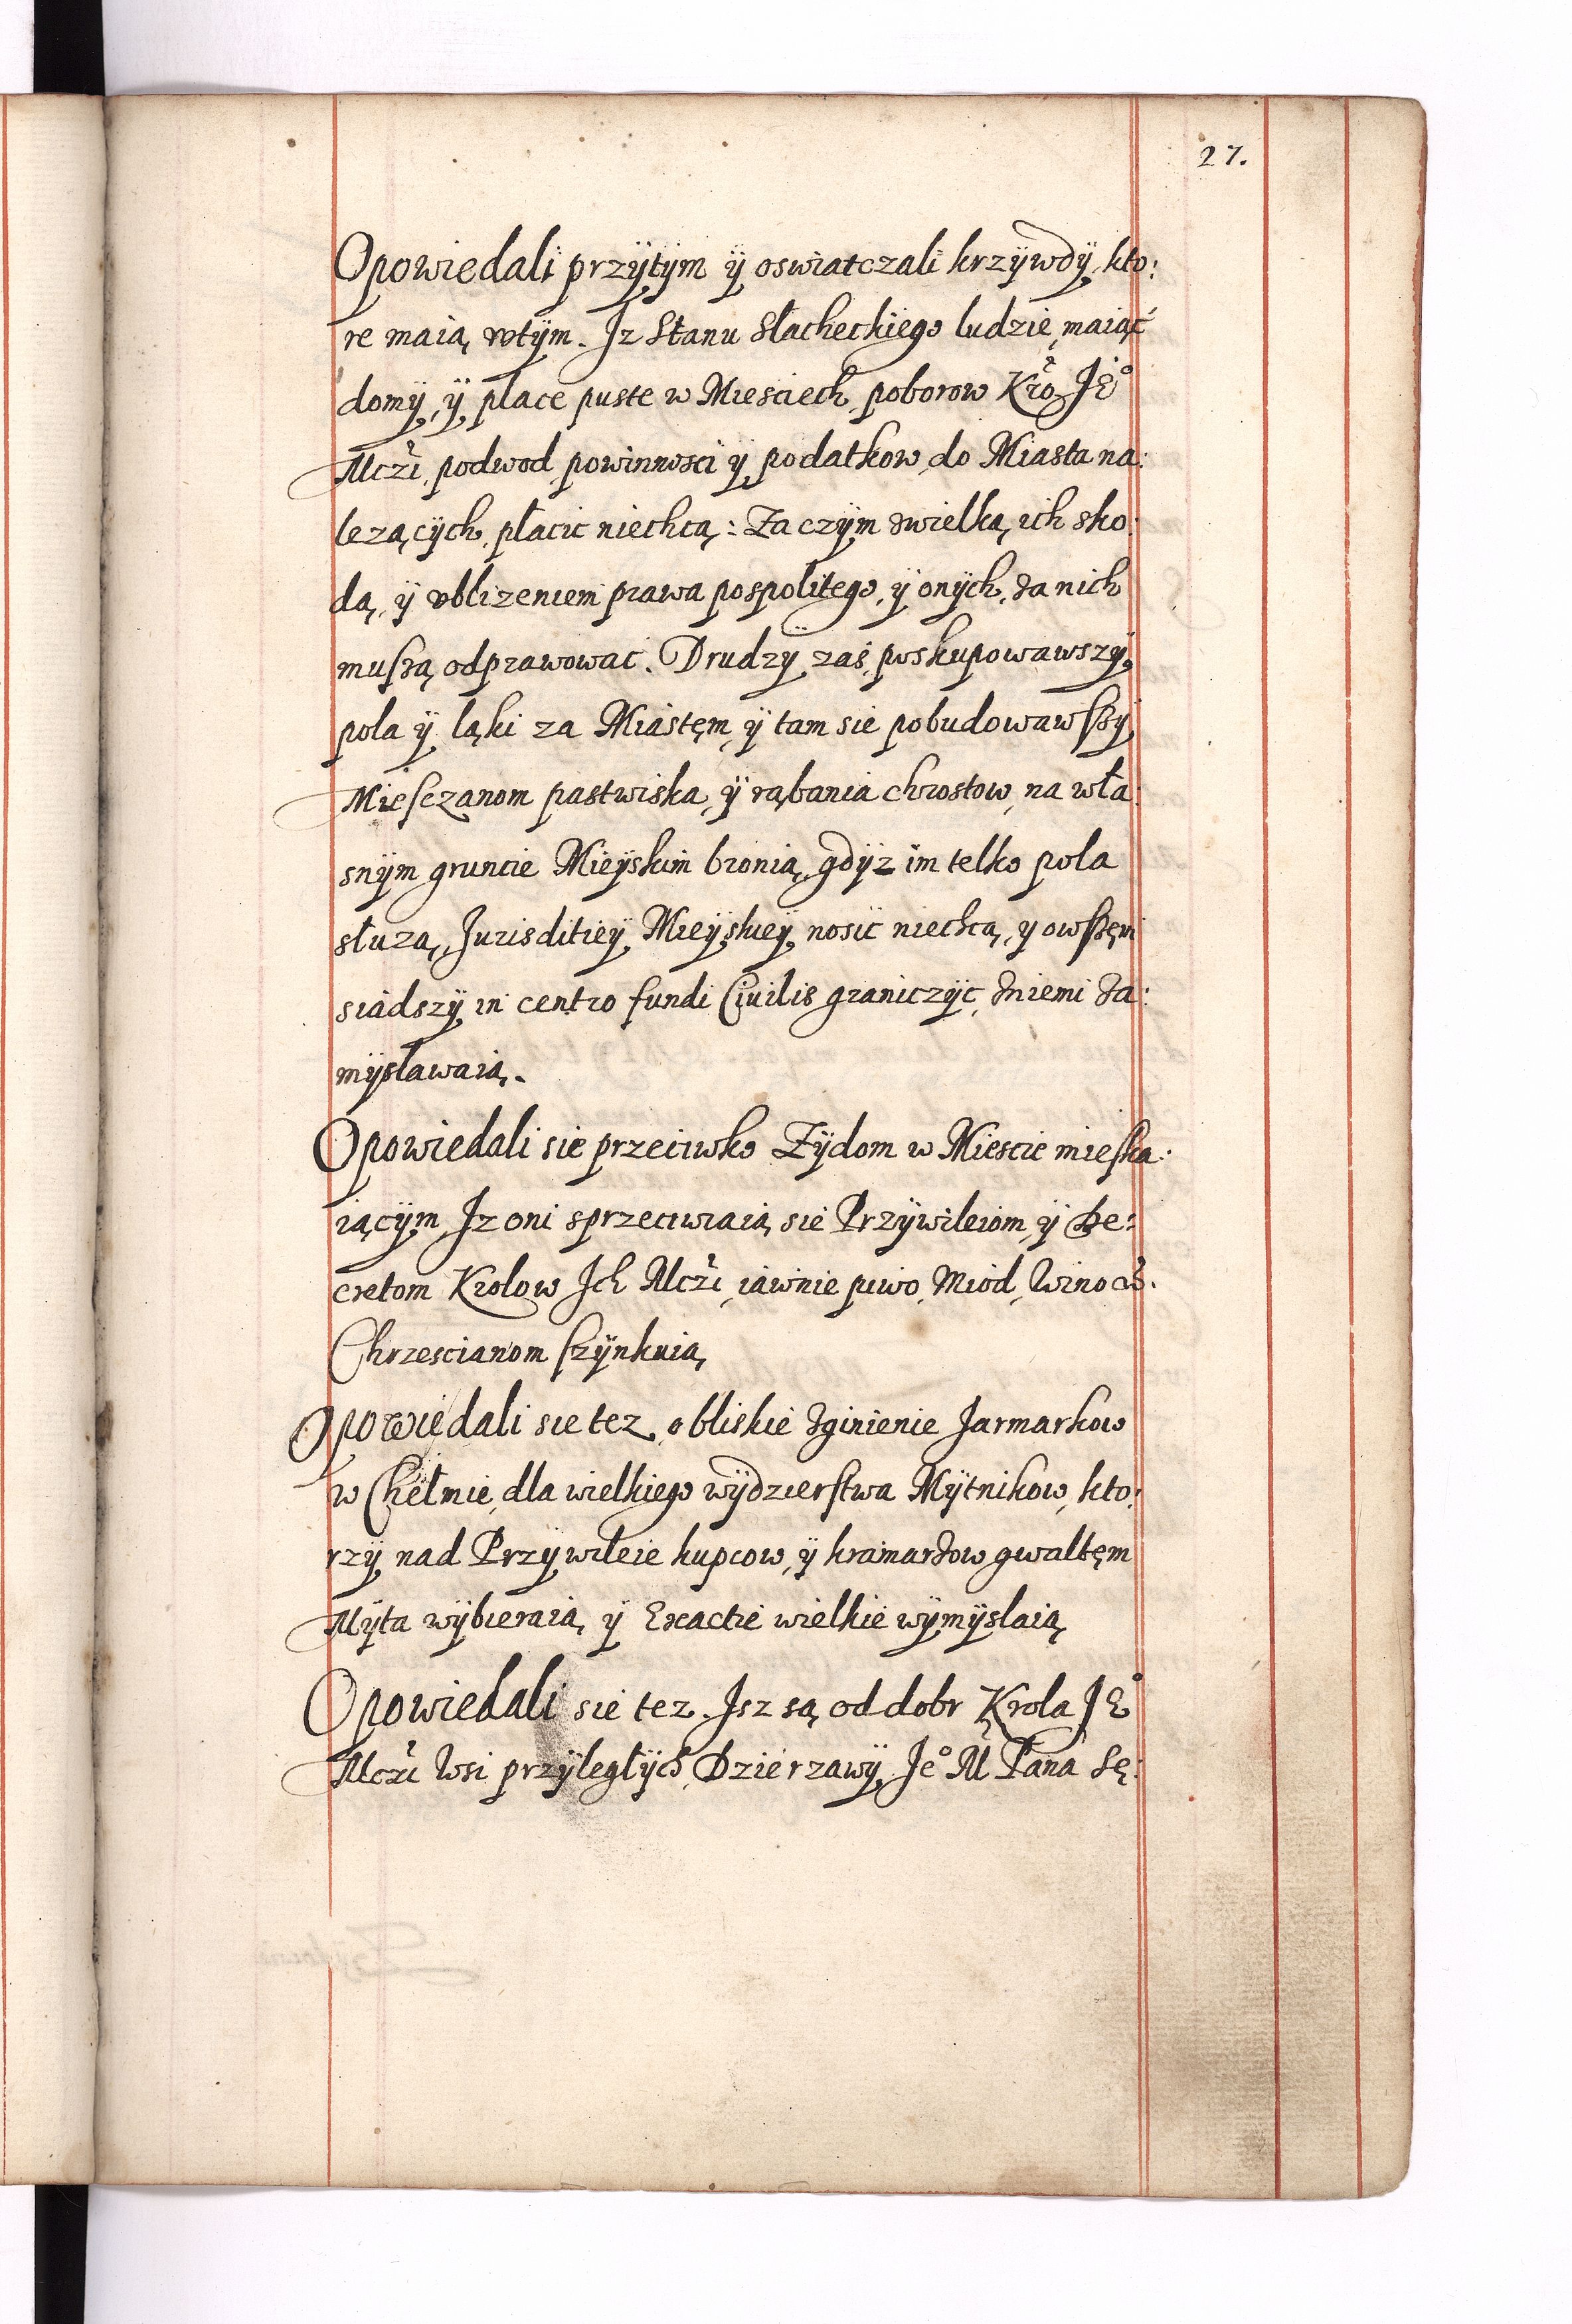 27.
Opowiedali przÿtÿm ÿ oswiatczali krzÿwdÿ, kto:
re maią wtÿm. Jz Stanu Slacheckiego ludzie, maiąc
domÿ, ÿ place puste w Miesciech, poborow Kro Je°
Mczi, podwod, powinnosci ÿ podatkow, do Miasta na:
lezącÿch, płacic niechcą: Zaczÿm zwielką ich sko:
dą, ÿ vblizeniem prawa pospolitego, ÿ onÿch, za nich
muszą odprawowac. Drudzÿ zaś poskupowawszÿ,
pola ÿ ląki za Miastęm, ÿ tam sie pobudowawszÿ,
Miesczanom pastwiska, ÿ rąbania chrostow, na wła:
snÿm gruncie Mieÿskim bronią, gdÿz im telko pola
słuzą, Jurisditieÿ Mieÿskieÿ nosić niechcą, y owszęm
siadszÿ in centro fundi Ciuilis graniczÿc zniemi za:
mÿsławaią.
Opowiedali sie przeciwko Zÿdom w Miescie mieska:
iącÿm, Jz oni sprzeciwiaią sie Przÿwileiom, ÿ De:
cretom Krolow Ich Mczi, iawnie piwo, Miod, Wino
Chrzescianom szÿnkuią,
Opowiedali sie tez, o bliskie zginienie Jarmarkow
w Chełmie, dla wielkiego wÿdzierstwa Mÿtnikow, kto:
rzÿ nad Przywileie kupcow, ÿ kramarzow gwaltęm
Mÿta wÿbieraią, ÿ Exactie wielkie wÿmÿslaią,
Opowiedali sie tez. Jsz są od dobr Krola Je°
Mczi Wsi przÿległÿch, Dzierzawÿ, Je° M Pana Sę: